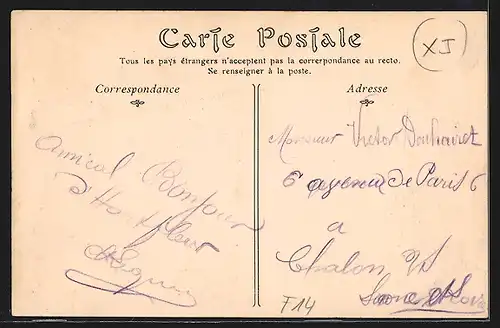 Carte Postale
Tous les pays étrangers n'acceptent pas la correrpondance au recto.
Se renseigner à la poste.
Correspondance
Adresse
XI
Amical Bonjour
d'Honfleur
Monsieur Victor
6 avenue de Paris 6
a
Chalon s/s
Saone et Loire
F14